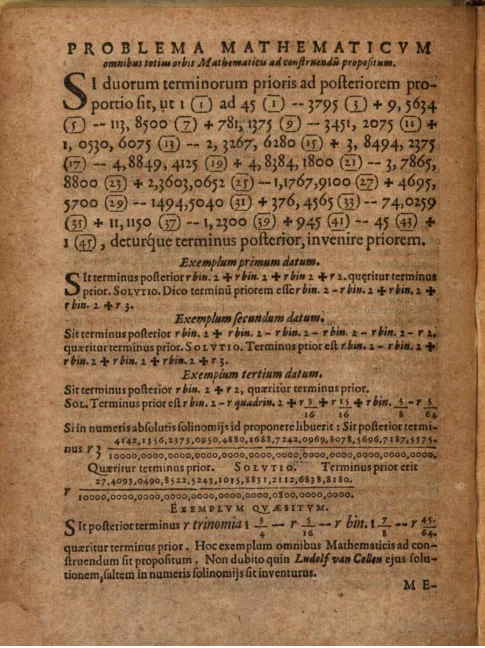 PROBLEMA MATHEMATICVM
omnibus totius orbis Mathematicis ad construendū propositum.
SI duorum terminorum prioris ad posteriorem pro-
portio sit, ut 1 (1) ad 45 (1) -- 3795 (3) + 9, 5634
(5) -- 113, 8500 (7) + 781, 1375 (9) -- 3451, 2075 (11) +
1, 0530, 6075 (13) -- 2, 3267, 6280 (15) + 3, 8494, 2375
(17) -- 4,8849, 4125 (19) + 4, 8384, 1800 (21) -- 3, 7865,
8800 (23) + 2,3603,0652 (25) -- 1,1767,9100 (27) + 4695,
5700 (29) -- 1494,5040 (31) + 376, 4565 (33) -- 74,0259
(35) + 11, 1150 (37) -- 1, 2300 (39) + 945 (41) -- 45 (43) +
1 (45), deturque terminus posterior, invenire priorem.
Exemplum primum datum.
SIt terminus posterior r bin. 2 + r bin. 2 + r bin 2 + r 2. queritur terminus
prior. SOLVTIO. Dico terminū priorem esse r bin. 2 - r bin. 2 + r bin. 2 +
r bin. 2 + r 3.
Exemplum secundum datum.
Sit terminus posterior r bin. 2 + r bin. 2 - r bin. 2 - r bin. 2 - r bin. 2 - r 2,
quæritur terminus prior. SOLVTIO. Terminus prior est r bin. 2 - r bin. 2 +
r bin. 2 + r bin. 2 + r bin. 2 + r 3.
Exemplum tertium datum.
Sit terminus posterior r bin. 2 + r 2, quæritur terminus prior.
SOL. Terminus prior est r bin. 2 - r quadrin. 2 + r 3/16 + r 15/16 + r bin. 5/8 - r 5/64
Si in numeris absolutis solinomijs id proponere libuerit : Sit posterior termi-
4142,1356,2373,0950,4880,1688,7242,0969,8078,5696,7187,5375.
nus r 3
10000,0000,0000,0000,0000,0000,0000,0000,0000,0000,0000,0000.
Quæritur terminus prior. SOLUTIO. Terminus prior erit
27,4093,0490,8522,5243,1015,8831,2112,6838,8180.
r
10000,0000,0000,0000,0000,0000,0000,0800,0000,0000.
EXEMPLVM QVÆSITVM.
SIt posterior terminus r trinomia 1 3/4 -- r 5/16 -- r bin. 1 7/8 -- r 45/64.
quæritur terminus prior. Hoc exemplum omnibus Mathematicis ad con-
struendum sit propositum. Non dubito quin Ludolf van Collen ejus solu-
tionem, saltem in numeris solinomijs sit inventurus.
M E-